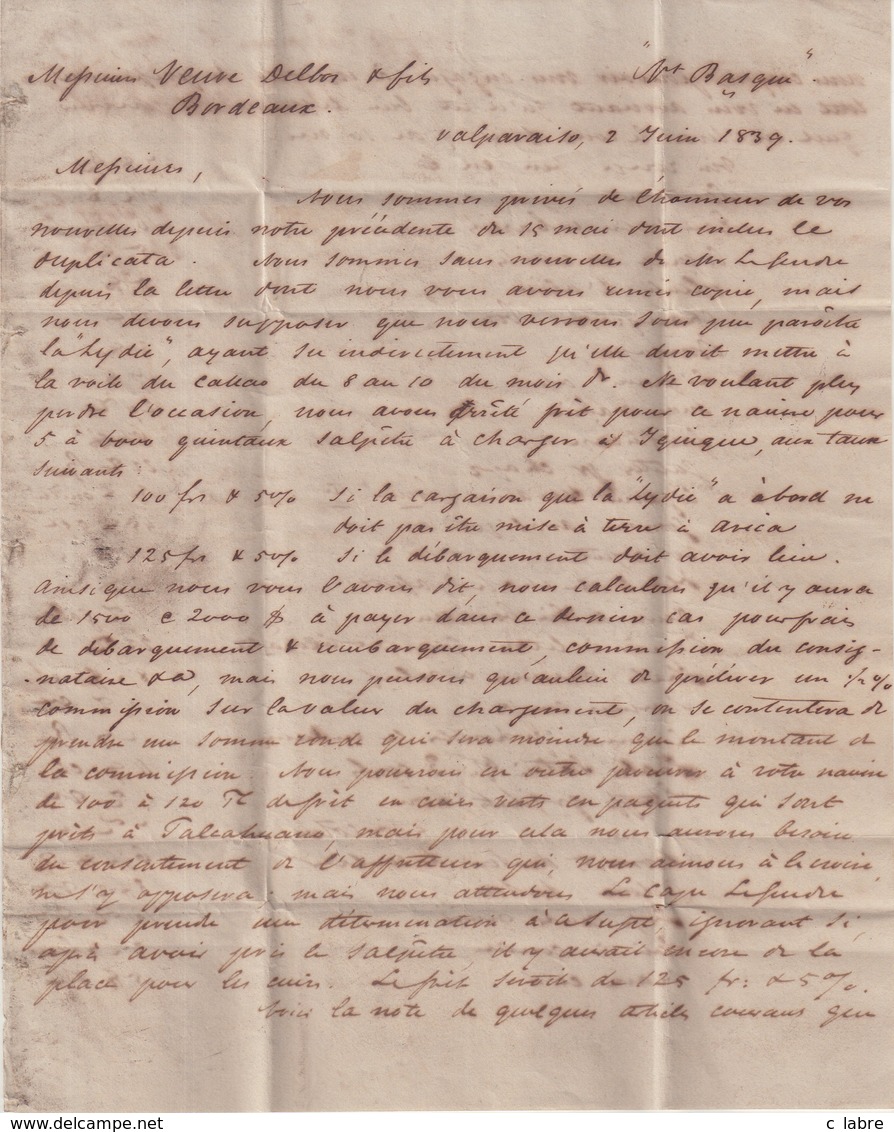 Messieurs Veuve Delbos & fils "Nt Basque".
Bordeaux.
Valparaiso, 2 Juin 1839.
Messieurs,
Nous sommes privés de l'honneur de vos
nouvelles depuis notre précédente du 15 mai dont inclus le
duplicata. Nous sommes sans nouvelles de Mr Lefendre
depuis la lettre dont nous vous avons remis copie, mais
nous devons supposer que nous verrons sous peu paroître
la "Lydie", ayant su indirectement qu'elle devoit mettre à
la voile du Callao du 8 au 10 du mois dr. Ne voulant plus
perdre l'occasion, nous avons arrêté frêt pour ce navire pour
5 à 6000 quintaux salpêtre à charger à Iquique, aux taux
suivants:
100 frs & 5 0% si la cargaison que la "Lydie" a à bord ne
doit pas être mise à terre à Arica
125 frs & 5 0% si le débarquement doit avoir lieu.
Ainsi que nous vous l'avons dit, nous calculons qu'il y aura
de 1500 à 2000 $ à payer dans ce dernier cas pour frais
de débarquement & rembarquement, commission du consig-
-nataire &a, mais nous pensons qu'au lieu de prélever un ½ %
commission sur la valeur du chargement, on se contentera de
prendre une somme ronde qui sera moindre que le montant de
la commission. Nous pourrons en outre procurer à votre navire
de 100 à 120 Tx de frêt en cuirs verts en paquets qui sont
prêts à Talcahuano, mais pour cela nous aurons besoin
du consentement de l'affréteur qui, nous aimons à le croire,
ne s'y opposera; mais nous attendons le capne Lefendre
pour prendre une détermination à ce sujet, ignorant si,
après avoir pris le salpêtre, il y aurait encore de la
place pour les cuirs. Le frêt seroit de 125 fr: & 5 0%.
Voici la note de quelques articles courans que
delcampe.net
c labre